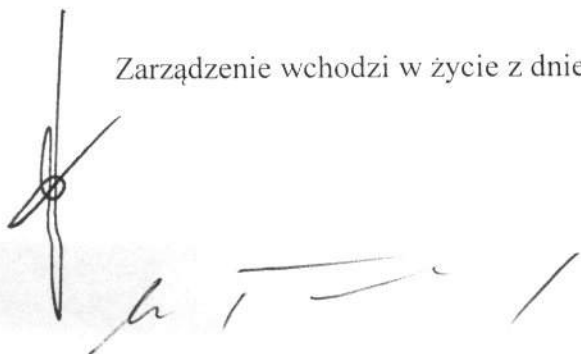 Zarządzenie wchodzi w życie z dnie